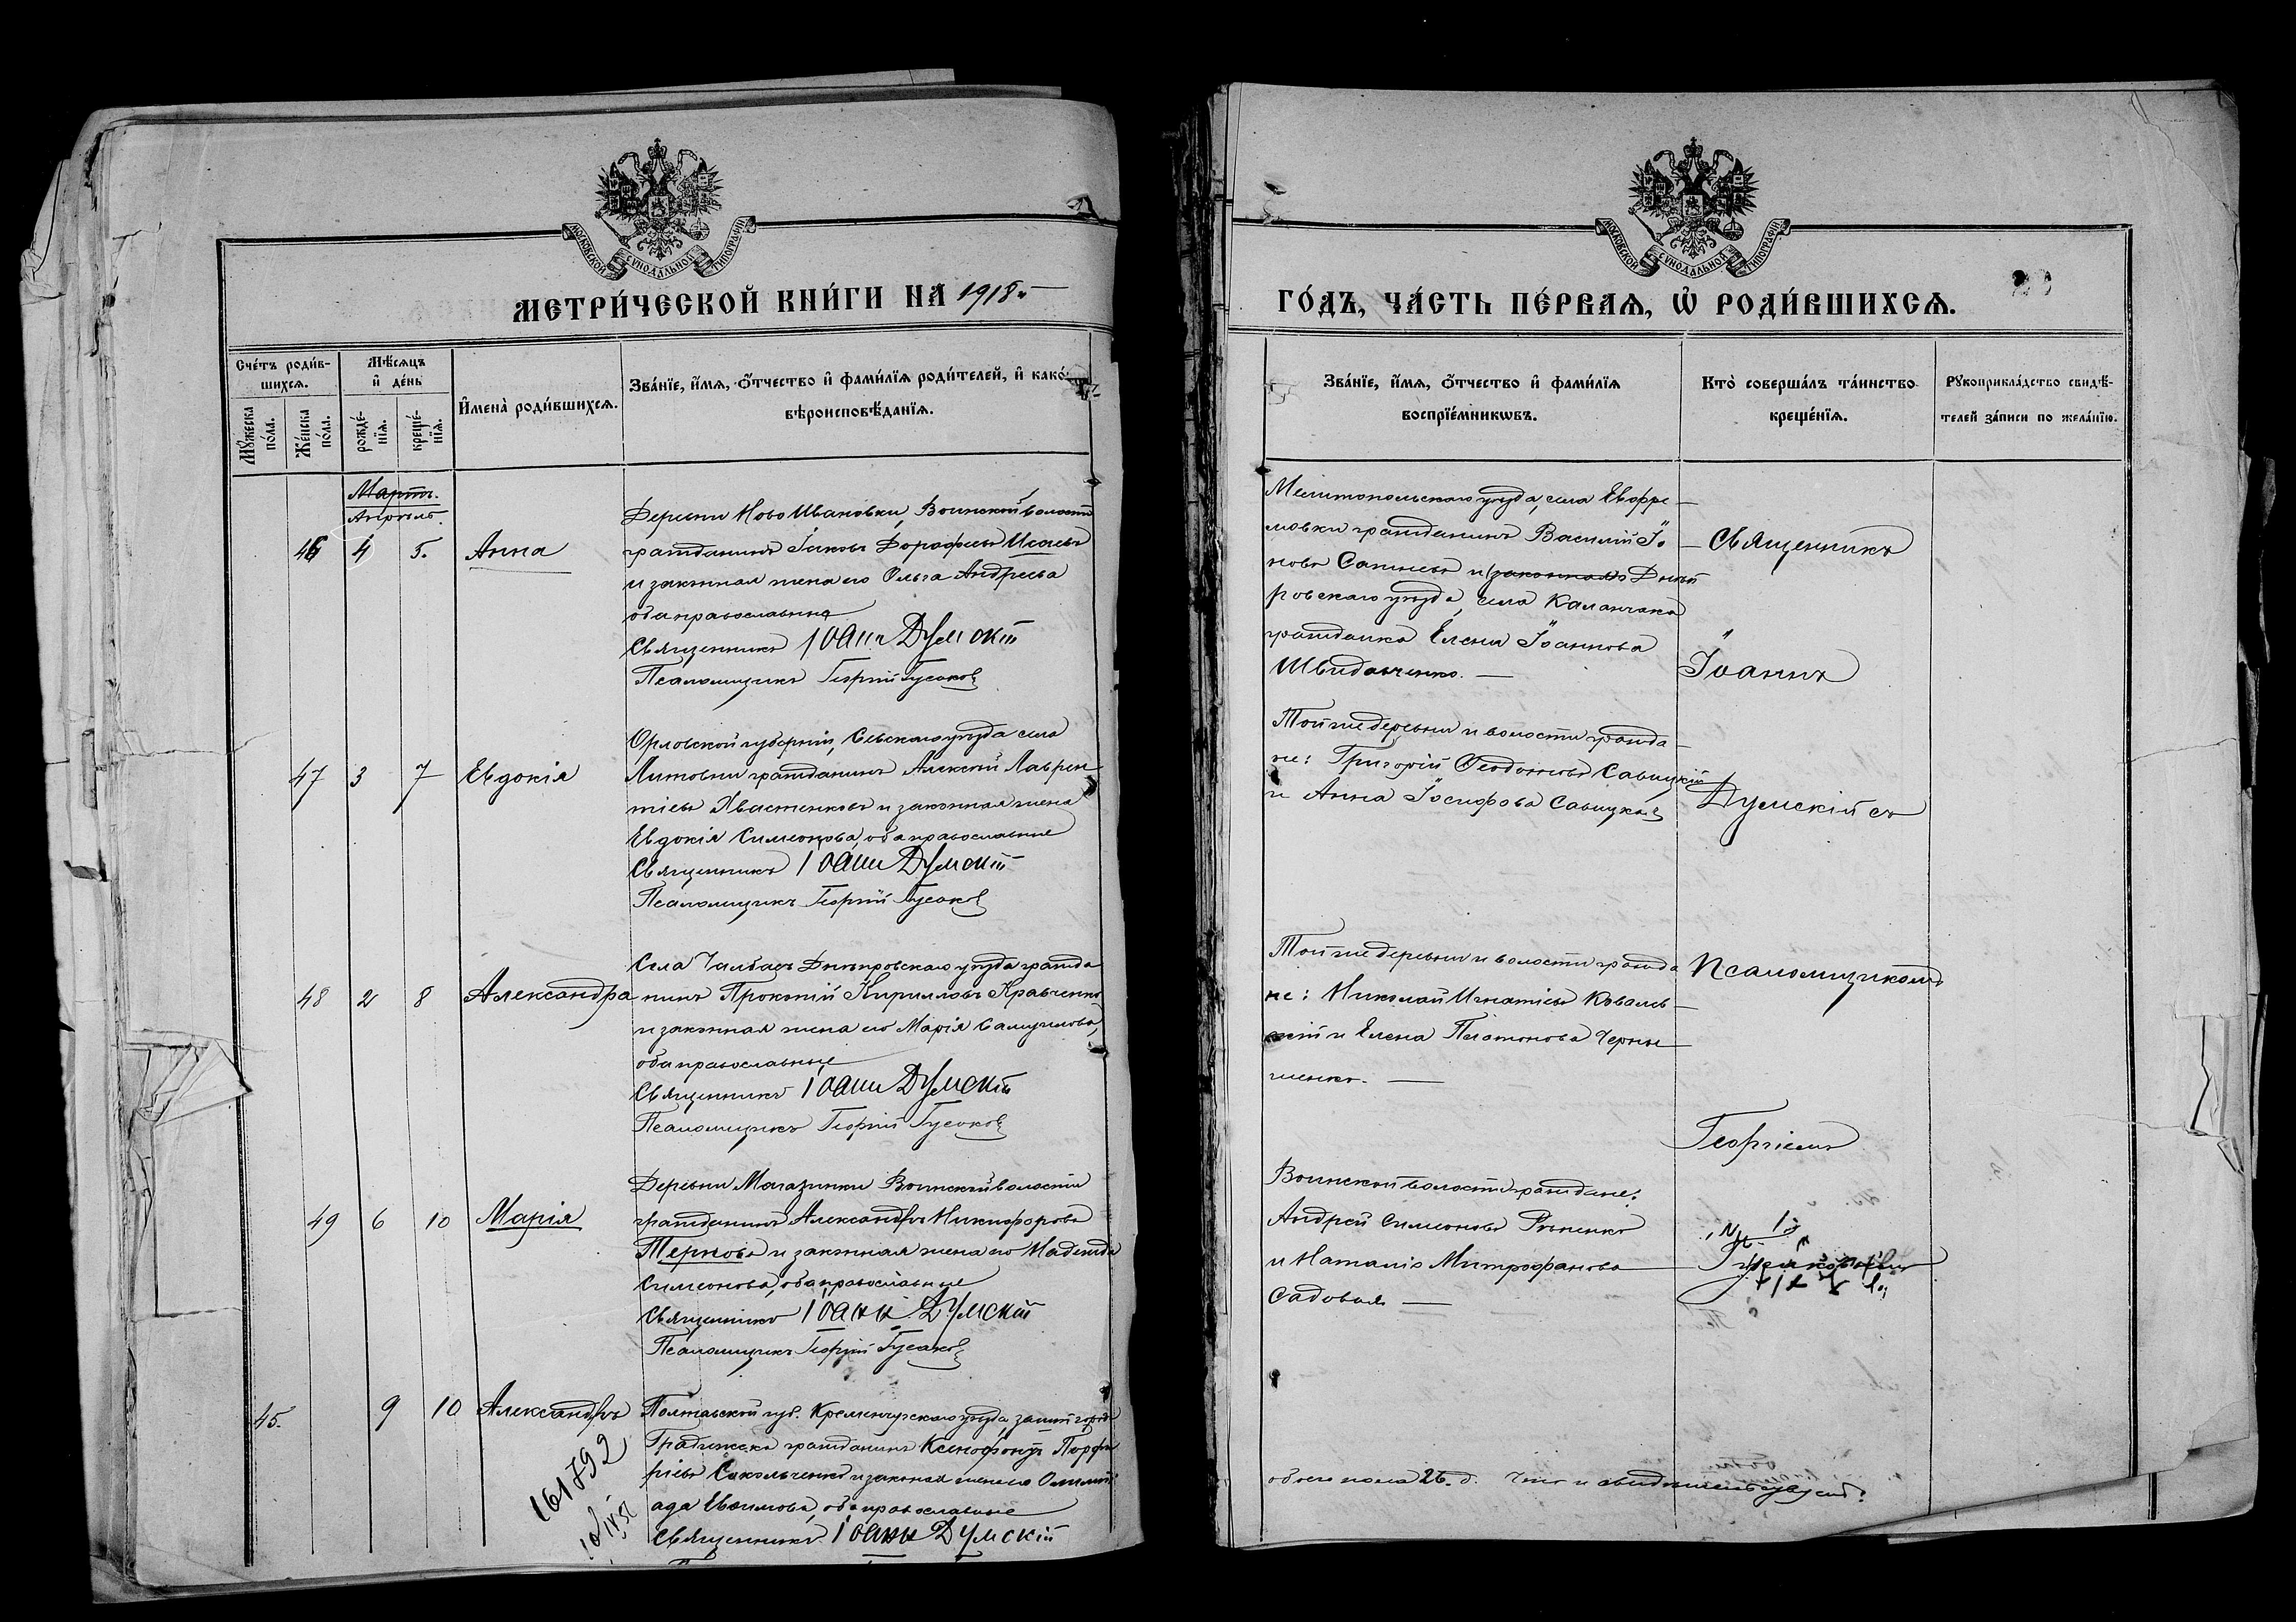 МОСКОВСКОЙ СѴНОДАЛЬНОЙ ТИПОГРАФІИ
МЕТРИ́ЧЕСКОЙ КНИ́ГИ НА 1918 г.
Сче́тъ роди́в-
шихсѧ.
Мꙋ́жеска по́ла.
Же́нска по́ла.
Мѣ́сѧцъ и҆ де́нь
рожде́-
нїѧ.
креще́-
нїѧ.
И҆мена̀ роди́вшихсѧ.
Зва́нїе, и҆́мѧ, ѻ҆́тчество и҆ фами́лїѧ роди́телей, и҆ како́-
вѣроисповѣ́данїѧ.
Мартъ.
Апрѣль.
46 4 5. Анна
Деревни Ново Ивановки, Воинской волости
гражданинъ Іаковъ Дорофеевъ Исаевъ
и законная жена его Ольга Андреева
оба православные
Священникъ Іоаннъ Думскій
Псаломщикъ Георгій Гусаковъ
47 3 7 Евдокія
Орловской губерніи, Севскаго уѣзда села
Литовни гражданинъ Алексей Лаврен
тіевъ Хвастенковъ и законная жена
Евдокія Симеонова, оба православные
Священникъ Іоаннъ Думскій
Псаломщикъ Георгій Гусаковъ
48 2 8 Александра
Села Чалбасъ Днѣпровскаго уѣзда гражда
нинъ Прокопій Кирилловъ Кравченко
и законная жена его Марія Самуилова,
оба православные
Священникъ Іоаннъ Думскій
Псаломщикъ Георгій Гусаковъ
49 6 10 Марія
Деревни Магазинки Воинской волости
гражданинъ Александръ Никифоровъ
Терновъ и законная жена его Надежда
Симеонова, оба православные
Священникъ Іоаннъ Думскій
Псаломщикъ Георгій Гусаковъ
45. 9 10 Александръ
Полтавской губ. Кременчугскаго уѣзда, города
Градижска гражданинъ Ксенофонтъ Порфи
ріевъ Сокольченко и законная жена его Олимпі
ада Евѳимова, оба православные
Священникъ Іоаннъ Думскій
161792
МОСКОВСКОЙ СѴНОДАЛЬНОЙ ТИПОГРАФІИ
ГО́ДЪ, ЧА́СТЬ ПЕ́РВАѦ, Ѽ РОДИ́ВШИХСѦ.
Зва́нїе, и҆́мѧ, ѻ҆́тчество и҆ фами́лїѧ
воспрїе́мникѡвъ.
Кто̀ соверша́лъ та́инство
креще́нїѧ.
Рꙋкоприкла́дство свидѣ́-
телей за́писи по жела́нїю.
Мелитопольскаго уѣзда, села Ефре-
мовки гражданинъ Василій Іо-
новъ и законная Днѣп
ровскаго уѣзда, села Каланчака
гражданка Елена Іоаннова
Швидченко. —
Той же деревни и волости гражда-
не: Григорій Савицкій
и Анна Іосифова Савицкая
Той же деревни и волости гражда
не: Николай Игнатіевъ Ковалев-
скій и Елена Платонова Черны
шенко. —
Воинской волости граждане:
Андрей Симеоновъ Рыпенко
и Наталія Митрофанова
Садовая —
обоего пола 26. д. Что и свидѣтельствуемъ:
Священникъ
Іоаннъ
Думскій съ
Псаломщикомъ
Георгіемъ
Гусаковымъ